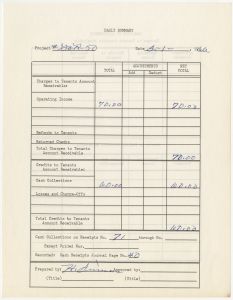 DAILY SUMMARY
Project
Date 2-1- , 19
TOTAL
ADJUSTMENTS
Add
Deduct
NET TOTAL
Charges to Tenants Account Receivable:
Operating Income 70.00 70.00
Refunds to Tenants
Returned Checks
Total Charges to Tenants Account Receivable 70.00
Credits to Tenants Account Receivable:
Cash Collections 60.00 60.00
Losses and Charge-Offs
Total Credits to Tenants Account Receivable 60.00
Cash Collections on Receipts No. 71 through No.
Except Voided Nos.
Recorded: Cash Receipts Journal Page No.
Prepared by Approved by:
(Title) (Title)